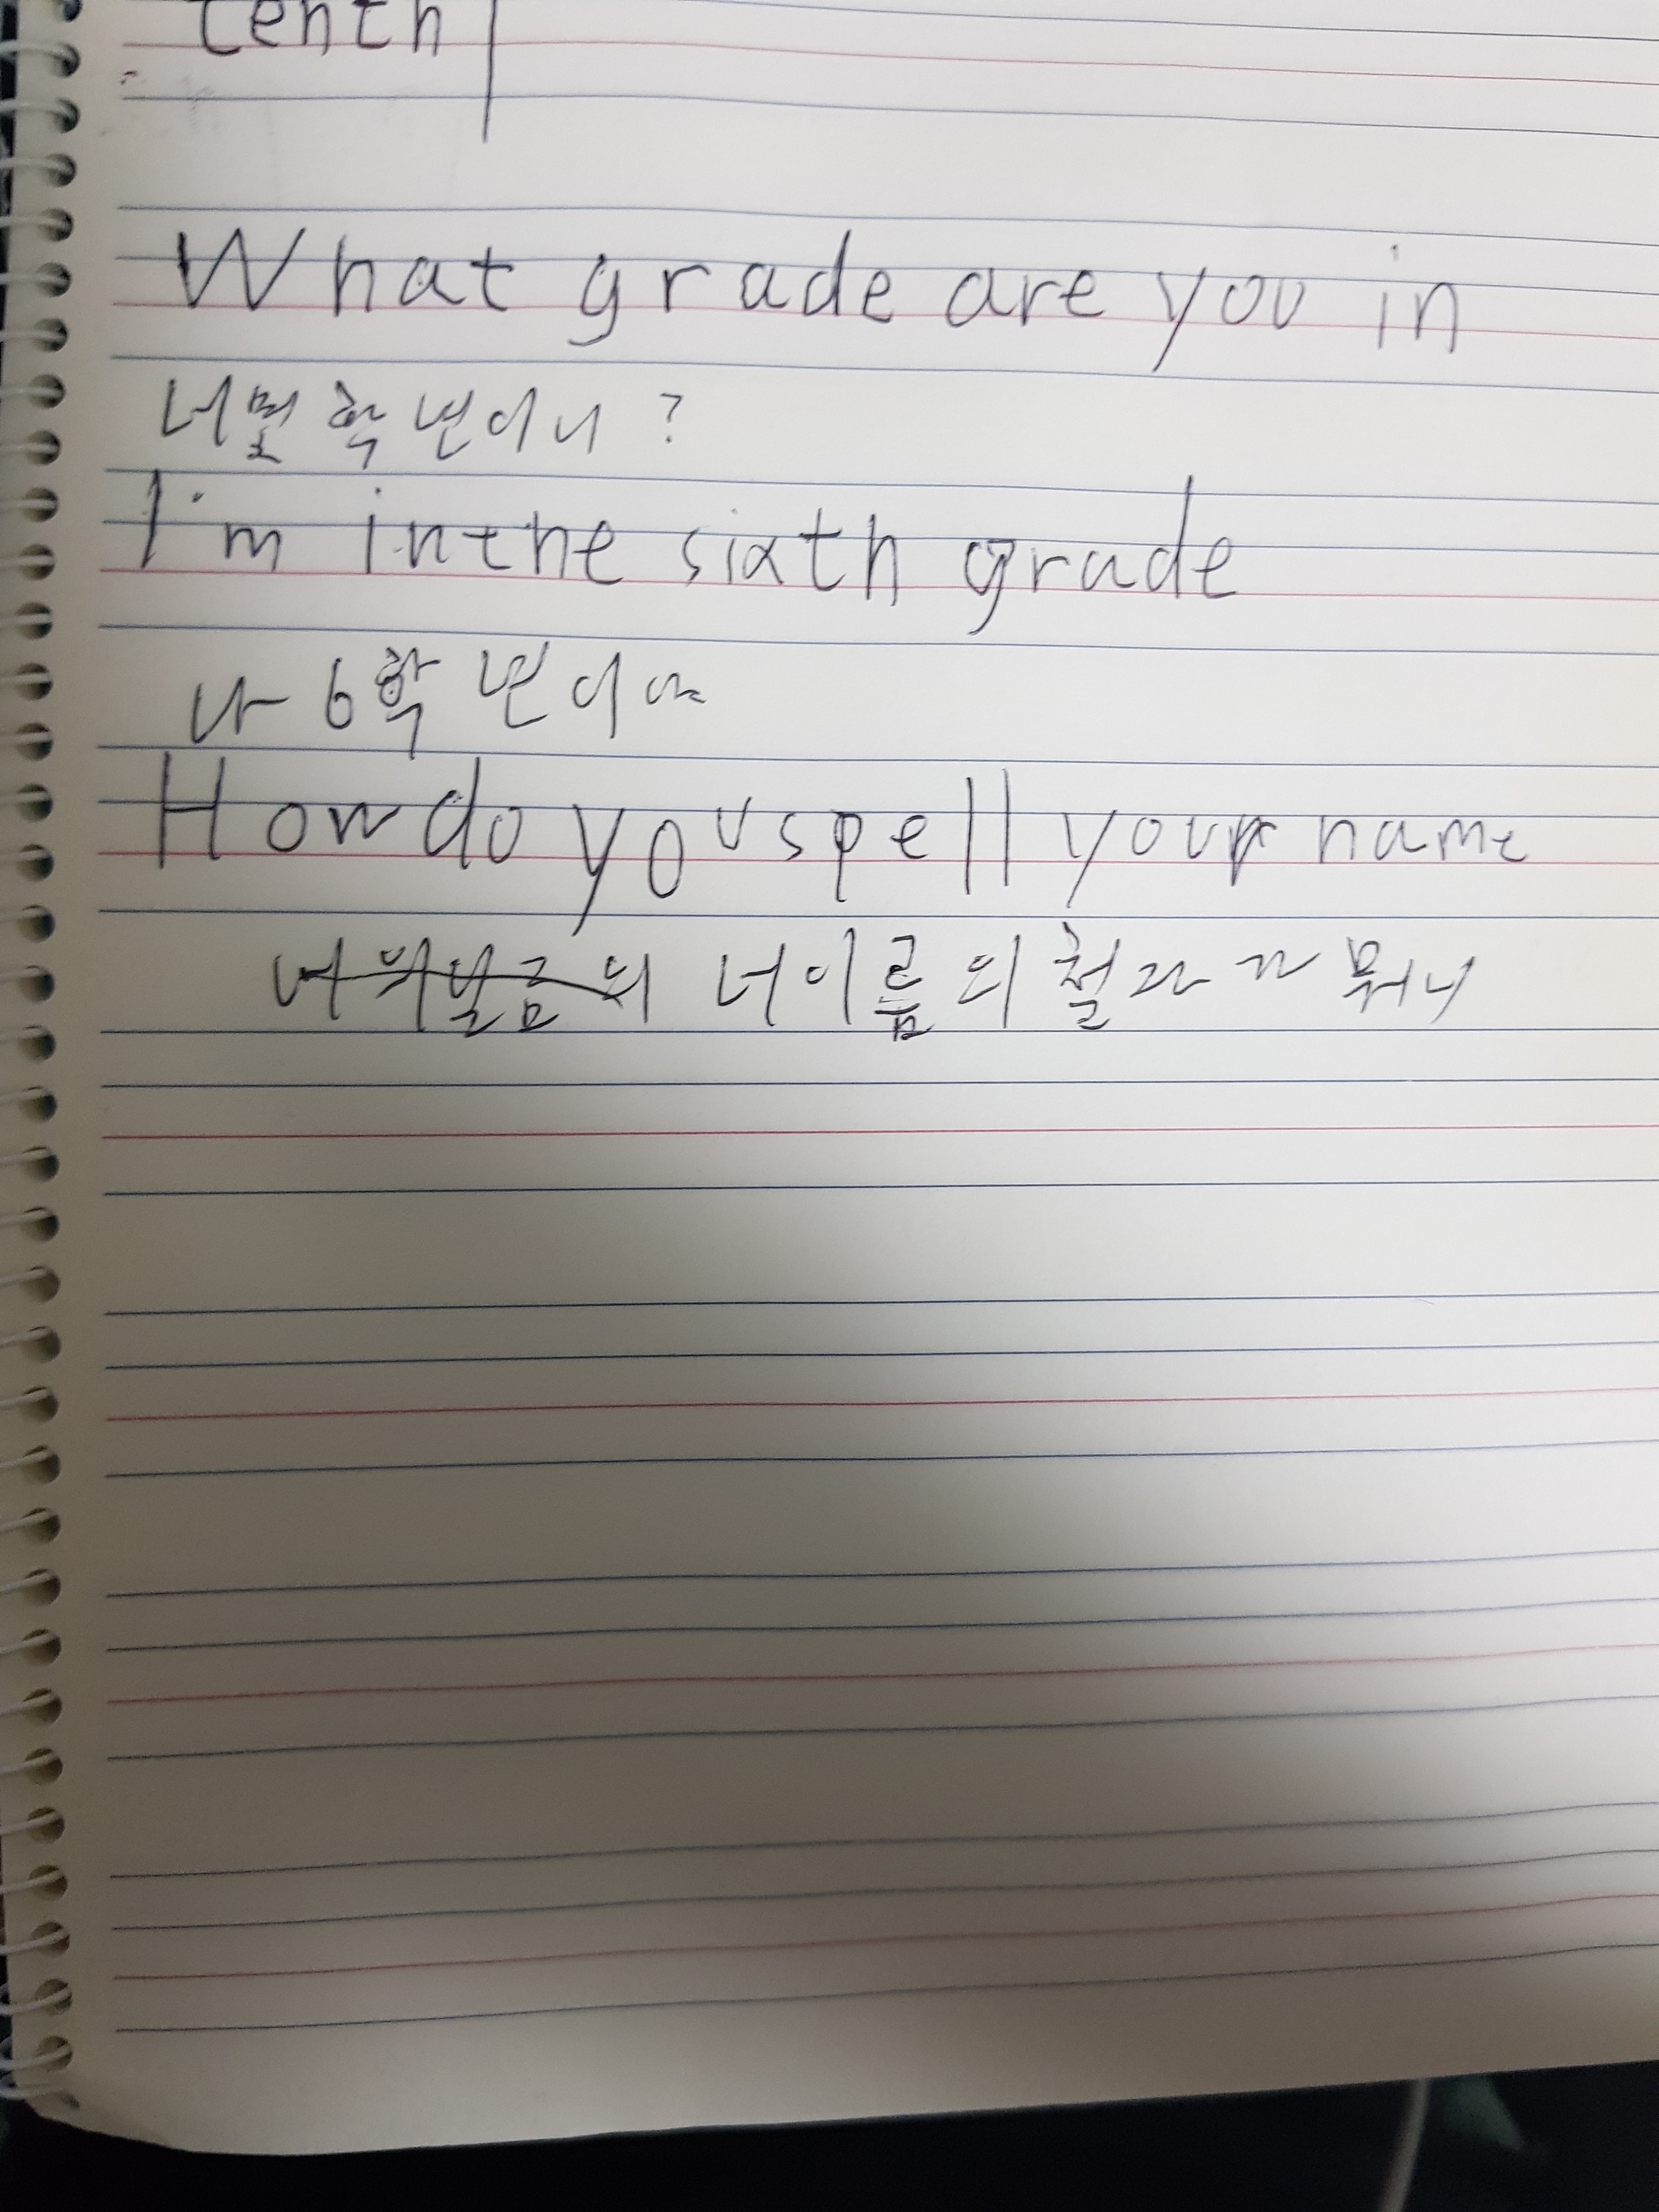 tenth
What grade are you in
너 몇 학년이니?
I'm in the sixth grade
나 6학년이야
How do you spell your name
너이름의 철자가 뭐니